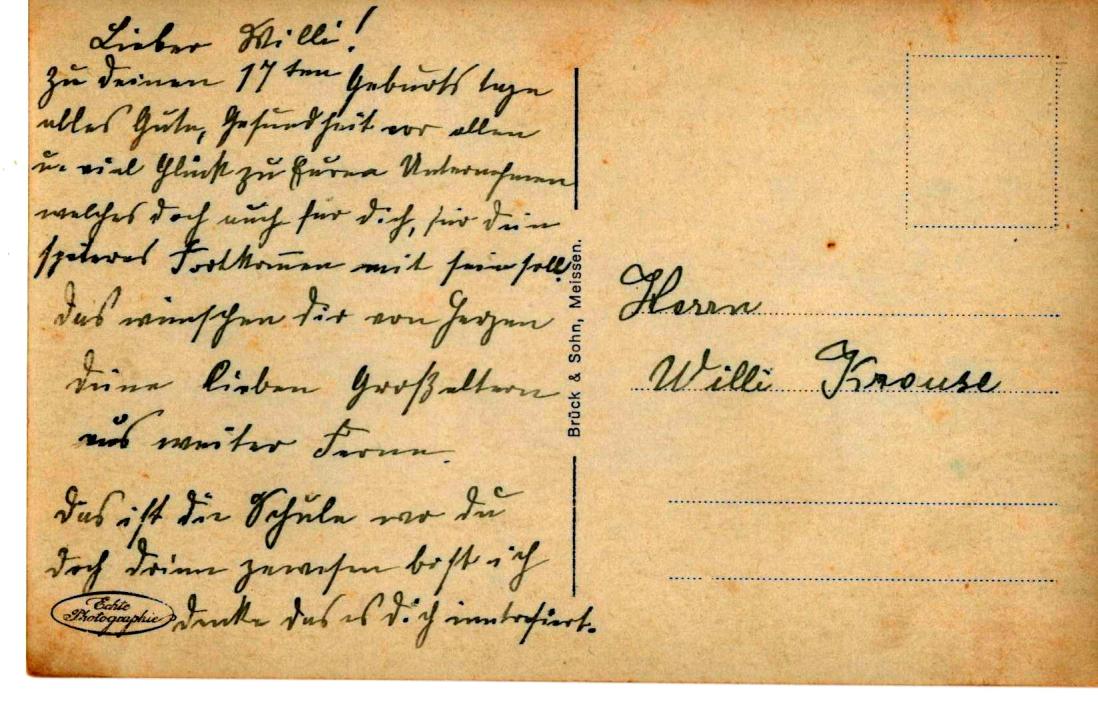 Lieber Willi!
Zu deinen 17ten Geburtstage
alles Gute, Gesundheit vor allen
u. viel Glück zu Euren Unternehmen
welches doch auch für dich, für dein
späteres Fortkommen mit sein soll
das wünschen dir von Herzen
deine lieben Großeltern
aus weiter Ferne.
Das ist die Schule wo du
doch drinn gewesen bist ich
denke das es dich intresiert.
Echte
Photographie
Brück & Sohn, Meissen.
Herrn
Willi Krause